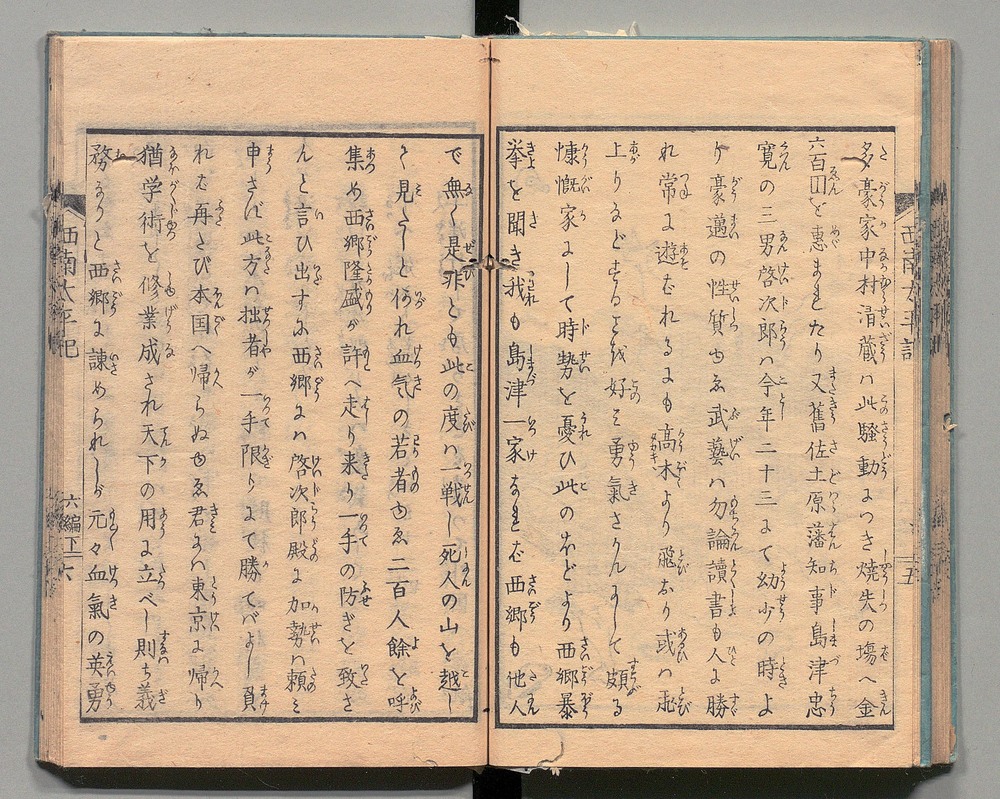 多豪家中村清蔵ハ此騒動につき焼失の場へ金
六百円を惠まれたり又舊佐土原藩知事島津忠
寛の三男啓次郎ハ今年二十三にて幼少の時よ
り豪邁の性質ゆゑ武藝ハ勿論讀書も人に勝
れ常に遊ばれるにも高木より飛おり或ハ飛
上りなどすることを好ミ勇氣さかんにして頗る
慷慨家にして時勢を憂ひ此のほどより西郷暴
挙を聞き我も島津一家なれば西郷も他人
で無く是非とも此の度ハ一戦し死人の山を越し
て見たしと何れ血気の若者ゆゑ二百人餘を呼
集め西郷隆盛が許へ走り来り一手の防ぎを致さ
んと言ひ出すに西郷にハ啓次郎殿に加勢ハ頼ミ
申さず此方ハ拙者が一手限りにて勝てバよし負
れば再たび本国へ帰らぬゆゑ君にハ東京に帰り
猶学術を修業成され天下の用に立べし則ち義
務なりと西郷に諫められしが元々血氣の英勇
西南太平記
五
西南太平記
六編下
六